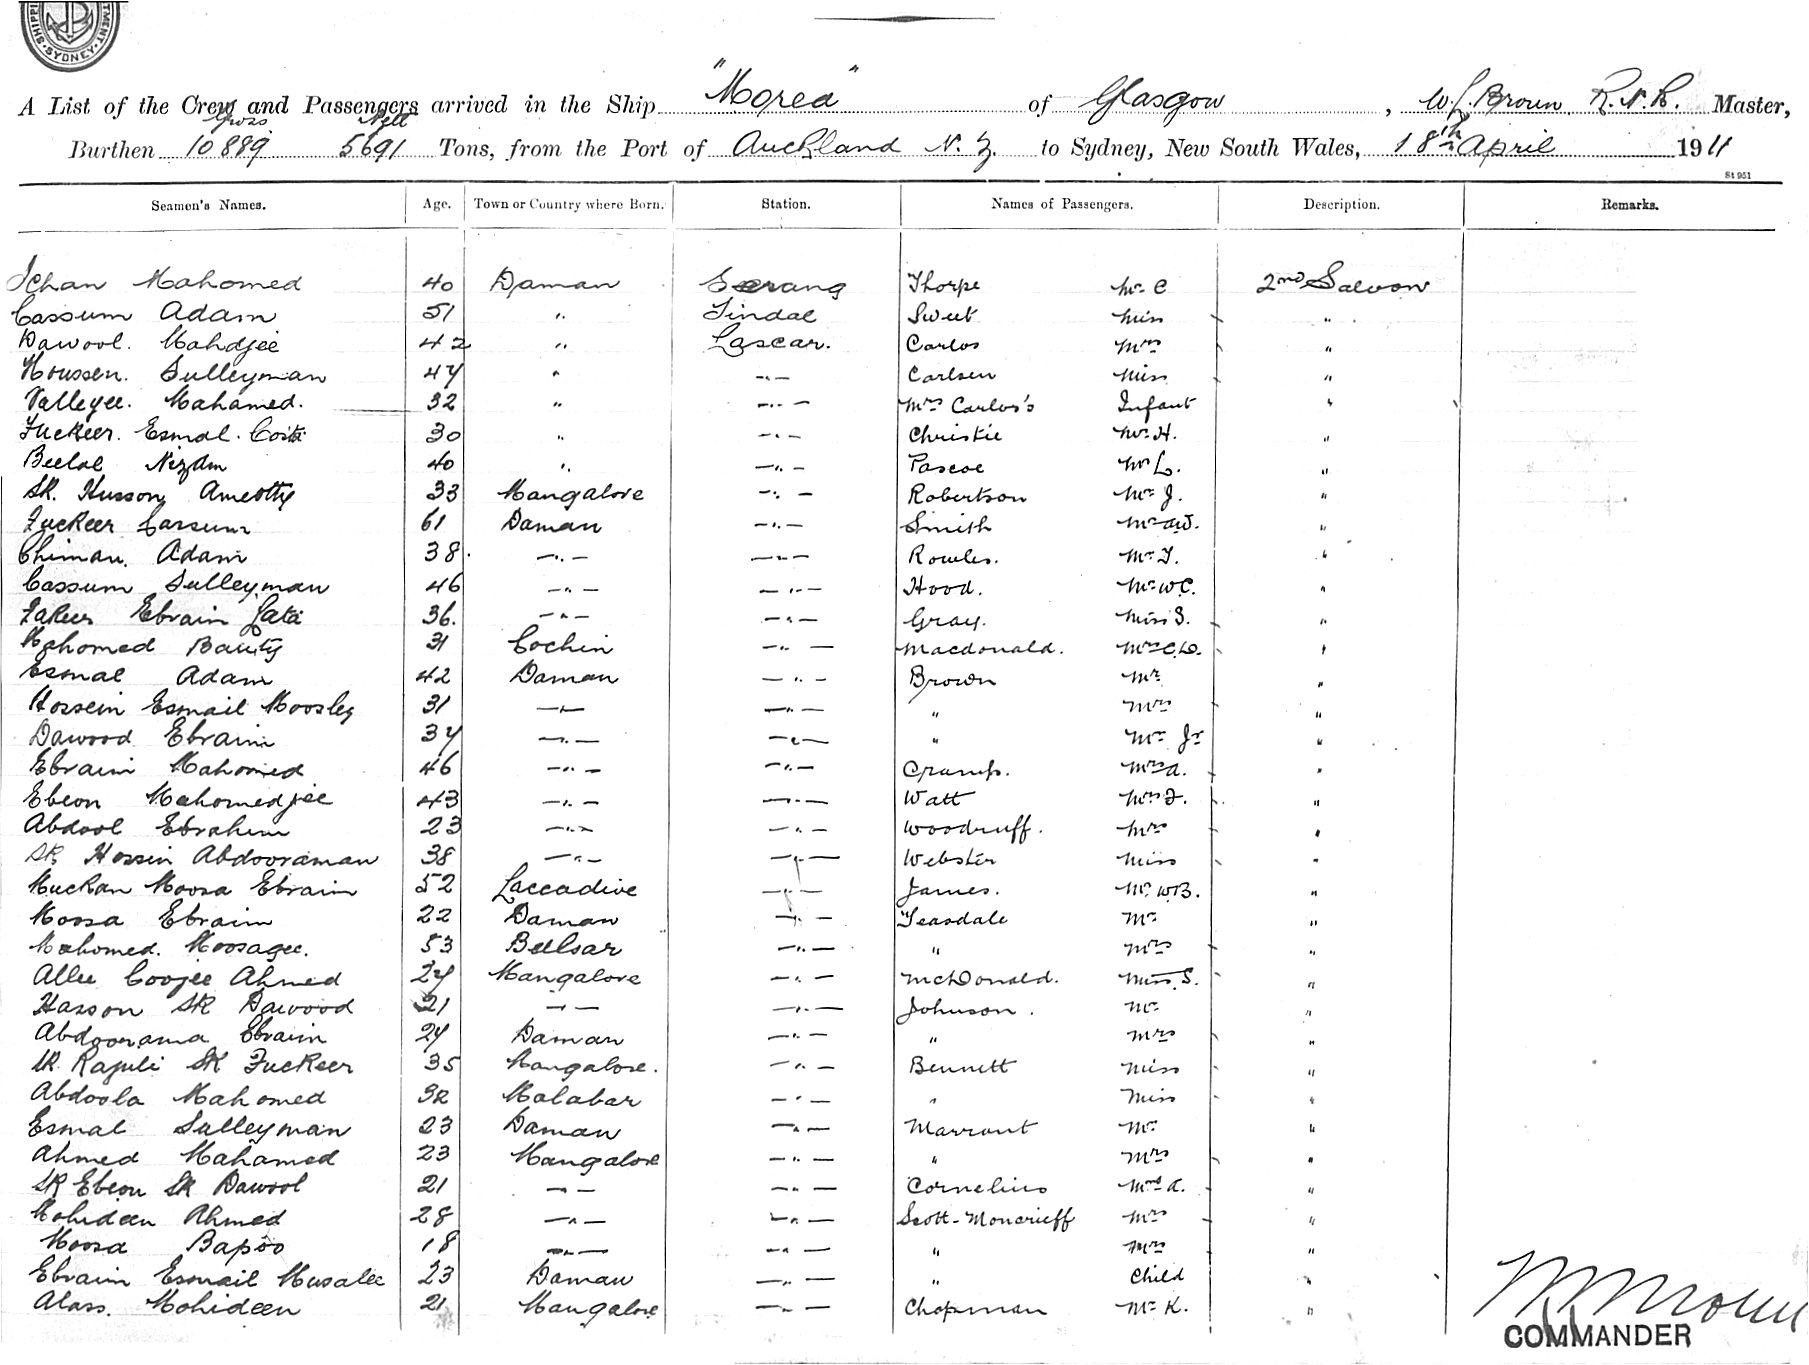 SHIPPI TMENT. SYDNEY
A List of the Crew and Passengers arrived in the Ship "Morea" of Glasgow, W. L. Brown R.N.R. Master,
Gross Nett
Burthen 10889 5691 Tons, from the Port of Auckland N.Z. to Sydney, New South Wales, 18th April 1911
St 951
Seamen's Names. Age. Town or Country where Born. Station. Names of Passengers. Description. Remarks.
Mahomed 40 Daman Serang Thorpe Mr C 2nd Saloon
Cassum Adam 51 " Tindal Sweet Miss "
Dawool. Mahdjee 42 " Lascar. Carlos Mrs "
Houssen. Sulleyman 47 " —"— Carlsen Miss "
Valleyee. Mahamed. 32 " —"— Mrs Carlos's Infant "
Fuckeer. Esmal. 30 " —"— Christie Mr H. "
Beelal Nizam 40 " —"— Pascoe Mr L. "
SK. Husson 33 Mangalore —"— Robertson Mr J. "
Fuckeer Cassum 61 Daman —"— Smith Mr A.W. "
Chiman. Adam 38. —"— —"— Rowles. Mr T. "
Cassum Sulleyman 46 —"— —"— Hood. Mr W.C. "
Fakeer Ebraim Lata 36. —"— —"— Gray. Miss S. "
Mahomed 31 Cochin —"— Macdonald. "
Esmal Adam 42 Daman —"— Brown Mr "
Hossein Esmail Moosley 31 —"— —"— " Mrs "
Dawood Ebraim 37 —"— —"— " Mr Jr "
Ebraim Mahomed 46 —"— —"— Cramp. Mrs A. "
Ebeon Mahomedjee 43 —"— —"— Watt "
Abdool Ebrahim 23 —"— —"— Woodruff. Mrs "
SK Hossin Abdooraman 38 —"— —"— Webster Miss "
Muckan Moosa Ebraim 52 Laccadive —"— James. Mr W.B. "
Moosa Ebraim 22 Daman —"— Teasdale Mr "
Mahomed. Moosagee. 53 Bulsar —"— " Mrs "
Allee Coojee Ahmed 27 Mangalore —"— McDonald. Miss S. "
Hasson SK Dawood 21 —"— —"— Johnson. Mr "
Abdoorama Ebraim 27 Daman —"— " Mrs "
SK. Rajuli SK Fuckeer 35 Mangalore. —"— Bennett Miss "
Abdoola Mahomed 32 Malabar —"— " Miss "
Esmal Sulleyman 23 Daman —"— Marrant Mr "
Ahmed Mahamed 23 Mangalore —"— " Mrs "
SK Ebeon SK Dawool 21 —"— —"— Cornelius "
Mohideen Ahmed 28 —"— —"— Scott-Moncrieff Mrs "
Moosa Bapoo 18 —"— —"— " Mrs "
Ebraim Esmail Musalee 23 Daman —"— " Child "
Alass. Mohideen 21 Mangalore —"— Chapman Mr K. "
COMMANDER